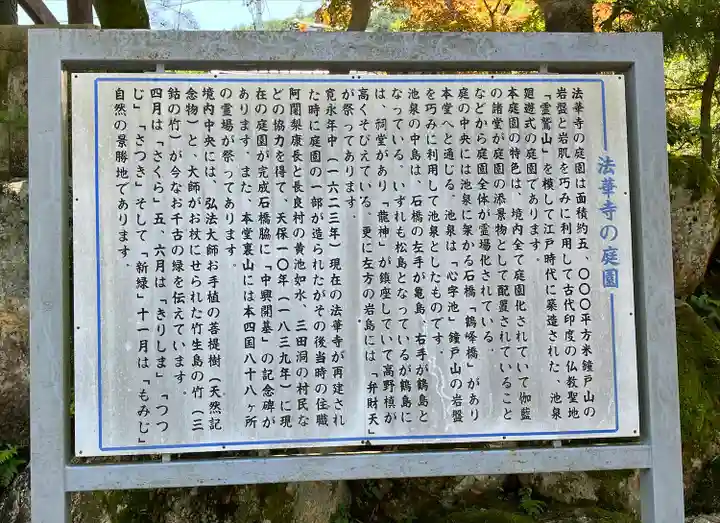 法華寺の庭園
法華寺の庭園は面積約五、〇〇〇平方米鐘戸山の
岩盤と岩肌を巧みに利用して古代印度の仏教聖地
「霊鷲山」を模して江戸時代に築造された、池泉
廻遊式の庭園であります。
本庭園の特色は、境内全て庭園化されていて伽藍
の諸堂が庭園の添景物として配置されていること
などから庭園全体が霊場化されている。
庭の中央には池泉に架かる石橋「鶴峰橋」があり
本堂へと通じる。池泉は「心字池」鐘戸山の岩盤
を巧みに利用して池泉としたものです。
池泉の中島は、石橋の左手が亀島、右手が鶴島と
なっている、いずれも松島となっているが鶴島に
は、祠堂があり「龍神」が鎮座していて高野槙が
高くそびえている、更に左方の岩島には「弁財天」
が祭ってあります。
寛永年中（一六二三年）現在の法華寺が再建され
た時に庭園の一部が造られたがその後当時の住職
阿闍梨康長と長良村の黄池如水、三田洞の村民な
どの協力を得て、天保一〇年（一八三九年）に現
在の庭園が完成石橋脇に「中興開基」の記念碑が
あります。また、本堂裏山には本四国八十八ヶ所
の霊場が祭ってあります。
境内中央には、弘法大師お手植の菩提樹（天然記
念物）と、大師がお杖にせられた竹生島の竹（三
鈷の竹）が今なお千古の緑を伝えています。
四月は「さくら」五、六月は「きりしま」「つつ
じ」「さつき」そして「新緑」十一月は「もみじ」
自然の景勝地であります。